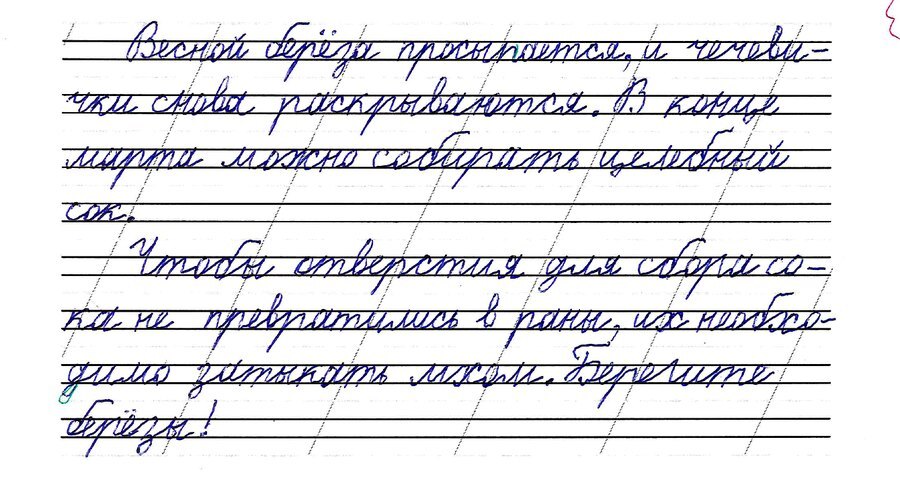 Весной берёза просыпается, и чечеви-
чки снова раскрываются. В конце
марта можно собирать целебный
сок.
Чтобы отверстия для сбора со-
ка не превратились в раны, их необхо-
димо затыкать мхом. Берегите
берёзы!